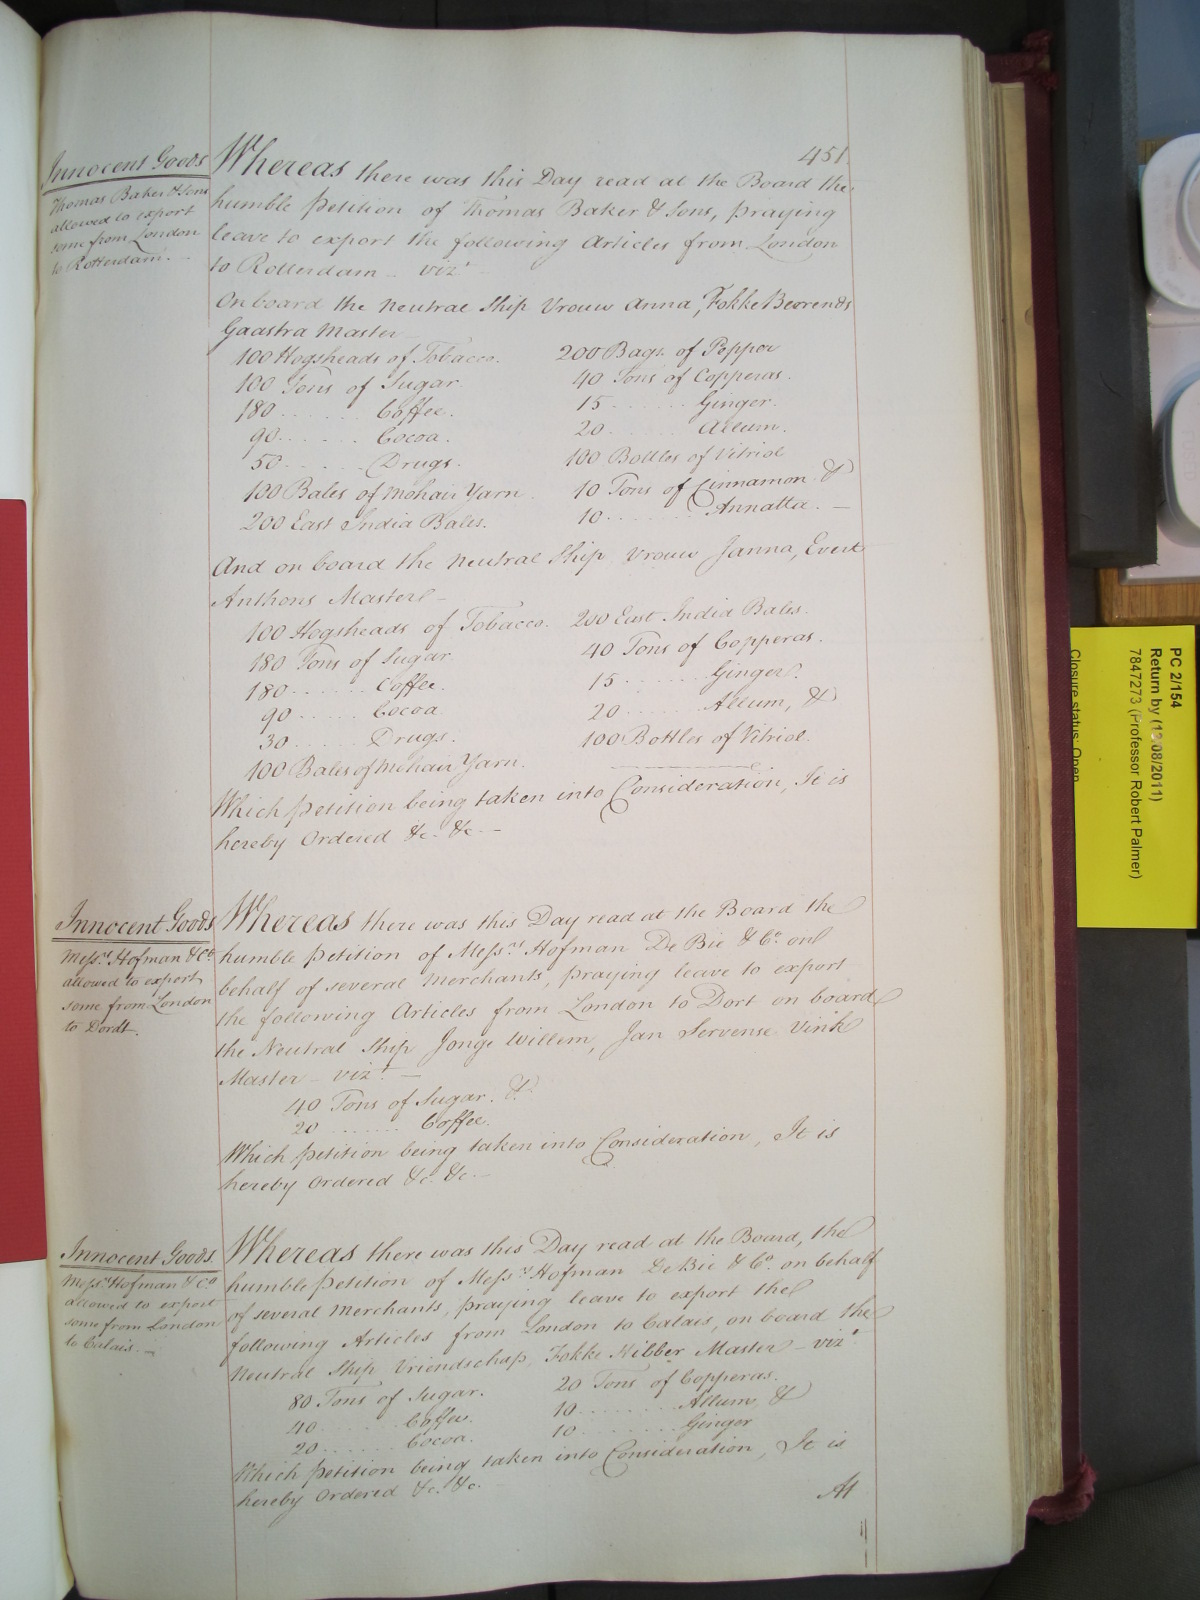 451.
Innocent Goods
Thomas Baker & Sons
allowed to export
some from London
to Rotterdam. —
Whereas there was this Day read at the Board the
humble Petition of Thomas Baker & Sons, praying
leave to export the following Articles from London
to Rotterdam — vizt
On board the Neutral Ship Vrouw Anna, Fokke Beerends
Gaastra Master
100 Hogsheads of Tobacco.
100 Tons of Sugar.
180 ........ Coffee.
90 ........ Cocoa.
50 ........ Drugs.
100 Bales of Mohair Yarn
200 East India Bales.
200 Bags of Pepper
40 Tons of Copperas.
15 ........ Ginger.
20 ........ Allum.
100 Bottles of Vitriol
10 Tons of Cinnamon &
10 ........ Annatta. —
And on board the Neutral Ship Vrouw Janna, Evert
Anthons Master —
100 Hogsheads of Tobacco.
180 Tons of Sugar
180 ........ Coffee.
90 ........ Cocoa
30 ........ Drugs.
100 Bales of Mohair Yarn.
200 East India Bales.
40 Tons of Copperas.
15 ........ Ginger.
20 ........ Allum, &
100 Bottles of Vitriol.
Which Petition being taken into Consideration, It is
hereby Ordered &c. &c —
Innocent Goods
Messrs Hofman & Co
allowed to export
some from London
to Dordt.
Whereas there was this Day read at the Board the
humble Petition of Messrs Hofman De Bie & Co. on
behalf of several Merchants, praying leave to export
the following Articles from London to Dort on board
the Neutral Ship Jonge Willem, Jan Servense Vink
Master — vizt. —
40 Tons of Sugar. &
20 ........ Coffee.
Which Petition being taken into Consideration, It is
hereby Ordered &c. &c. —
Innocent Goods.
Messrs Hofman & Co
allowed to export
some from London
to Calais. —
Whereas there was this Day read at the Board, the
humble Petition of Messrs Hofman De Bie & Co. on behalf
of several Merchants, praying leave to export the
following Articles from London to Calais, on board the
Neutral Ship Vriendschap, Fokke Hibber Master — vizt
80 Tons of Sugar.
40 ........ Coffee.
20 ........ Cocoa.
20 Tons of Copperas.
10 ........ Allum, &
10 ........ Ginger
Which Petition being taken into Consideration, It is
hereby Ordered &c. &c.
At
PC 2/154
Return by (12/08/2011)
7847273 (Professor Robert Palmer)
Closure status: Open